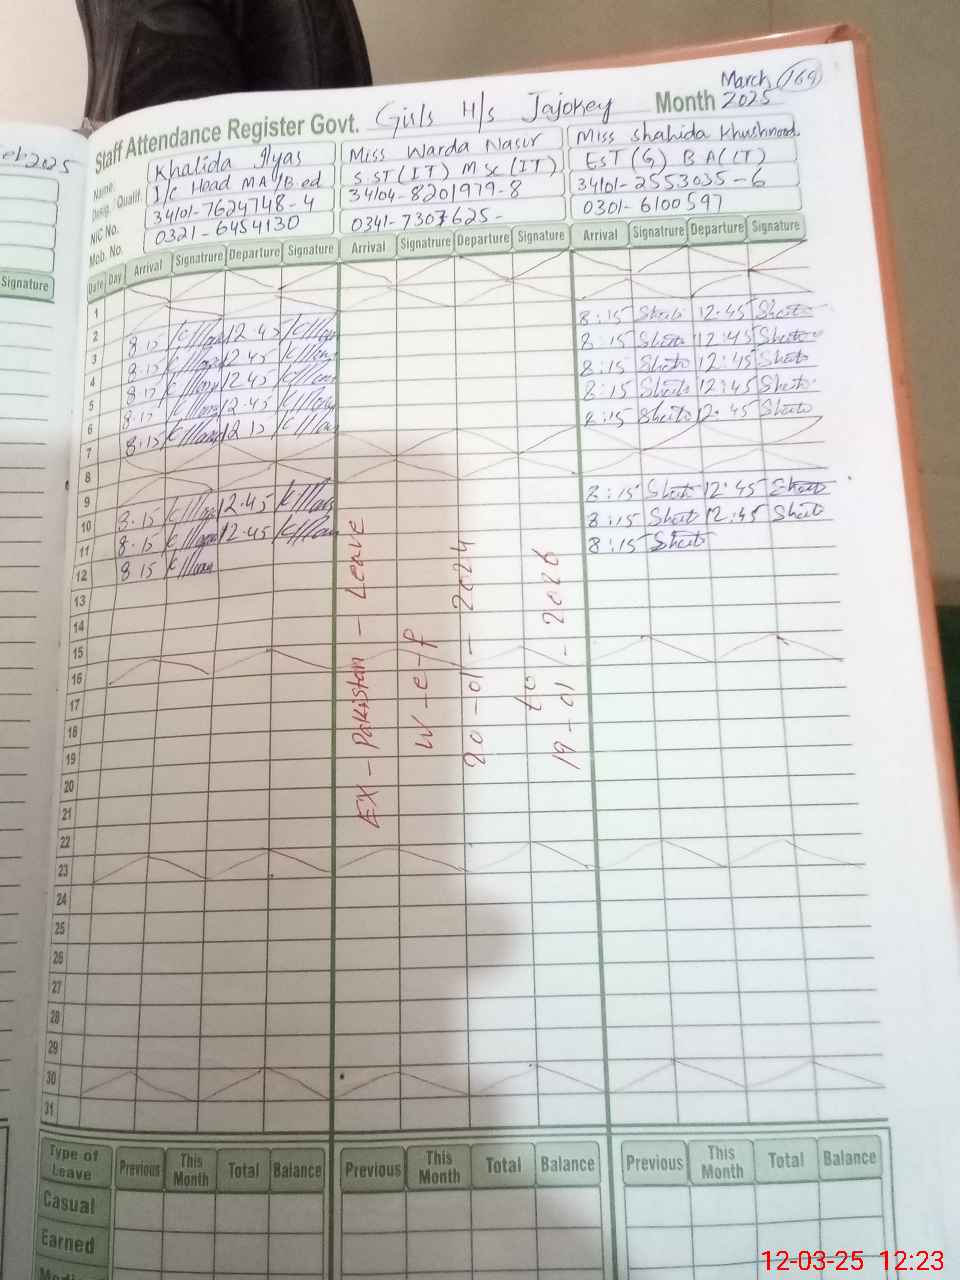 eb 2025
Signature
March 169
Staff Attendance Register Govt. Girls H/s Jajokey Month 2025
Name: Khalida Ilyas Miss Warda Nasir Miss Shahida Khushnood
Desig. Qualif. I/c Head MA/B.ed S.ST(IT) M Sc (IT) EST (G) B A(IT)
NIC No. 34101-7624748-4 34104-8201979-8 34101-2553035-6
Mob. No. 0321-6454130 0341-7307625- 0301-6100597
Date Day Arrival Signatrure Departure Signature Arrival Signatrure Departure Signature Arrival Signatrure Departure Signature
1
2
8:15 12:45
8:15 12:45
3
8:15 12:45
8:15 12:45
4
8:15 12:45
8:15 12:45
5
8:15 12.45
8:15 12:45
6
8.15 12 15
8:15 12:45
7
8
9
8.15 12.45
8:15 12:45
10
8.15 12.45
8:15 12:45
11
8 15
8:15
12
13
14
15
16
17
18
19
20
21
22
23
24
25
26
27
28
29
30
31
EX - Pakistan - Leave
W-e-f
20-01-2024
to
19-01-2026
Type of Leave Previous This Month Total Balance Previous This Month Total Balance Previous This Month Total Balance
Casual
Earned
12-03-25 12:23